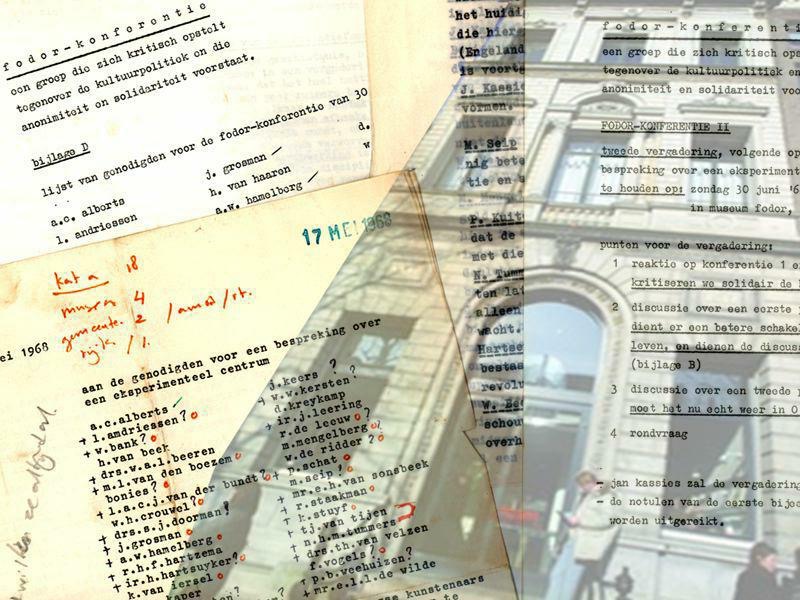 fodor-konferentie
een groep die zich kritisch opstelt
tegenover de kultuurpolitiek en die
anonimiteit en solidariteit voorstaat.
bijlage D
lijst van genodigden voor de fodor-konferentie van 30
a.c. alberts
l. andriessen
j. grosman
h. van haaren
a.w. hamelberg
d.
w
17 MEI 1968
kata 18
4
gemeente. 2
rijk / 1.
ei 1968
aan de genodigden voor een bespreking over
een eksperimenteel centrum
a.c.alberts
+ l.andriessen?
+ w.bank?
h.van beek
+ drs.w.a.l.beeren
+ m.l.van den boezem
bonies?
+ l.a.c.j.van der bundt?
w.h.crouwel?
+ drs.s.j.doorman?
+ j.grosman
+ a.w.hamelberg
+ r.h.f.hartzema
+ ir.h.hartsuyker?
k.van iersel
kaper
j.keers ?
+ w.w.kersten?
d.kreykamp
+ ir.j.leering
r.de leeuw ?
m.mengelberg
w.de ridder ?
+ p.schat
m.seip!
+ mr.e.h.van sonsbeek
r.staakman
+ k.stuyf
+ tj.van tijen
+ n.h.m.tummers
+ drs.th.van velzen
f.vogels?
+ p.b.weehuizen?
+ mr.e.l.l.de wilde
sse kunstenaars
het huidi
die hier
(Engeland
is voort
J. Kassie
vormen.
M. Seip
nig bete
tie en s
P. Kuit
dat de
met die
N. Tumm
ten lat
alleen
wacht.
Hartse
bestaa
revolu
W. Bee
schou
overh
een
fodor-konferenti
een groep die zich kritisch ops
tegenover de kultuurpolitiek en
anonimiteit en solidariteit voo
FODOR-KONFERENTIE II
tweede vergadering, volgende op
bespreking over een eksperiment
te houden op: zondag 30 juni '6
in museum fodor,
punten voor de vergadering:
1 reaktie op konferentie 1 e
kritiseren we solidair de
2 discussie over een eerste
dient er een betere schake
leven, en dienen de discus
(bijlage B)
3 discussie over een tweede
moet het nu echt weer in O
4 rondvraag
- jan kassies zal de vergadering
- de notulen van de eerste bijee
worden uitgereikt.